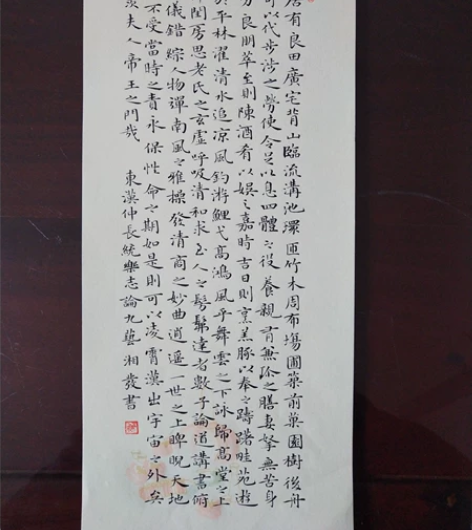 居有良田廣宅背山臨流溝池環匝竹木周布場圃築前菓園樹後舟
可以代步涉之勞使令足以息四體之役養親有兼珍之膳妻孥無苦身
良朋萃至則陳酒肴以娛之嘉時吉日則烹羔豚以奉之躊躇畦苑遊
於平林濯清水追凉風釣游鯉弋高鴻風乎舞雩之下詠歸高堂之上
閨房思老氏之玄虛呼吸清和求至人之髣髴達者數子論道講書俯
儀錯綜人物彈南風之雅操發清商之妙曲逍遙一世之上睥睨天地
不受當時之責永保性命之期如是則可以凌霄漢出宇宙之外矣
羨夫入帝王之門哉 東漢仲長統樂志論九藝湘發書